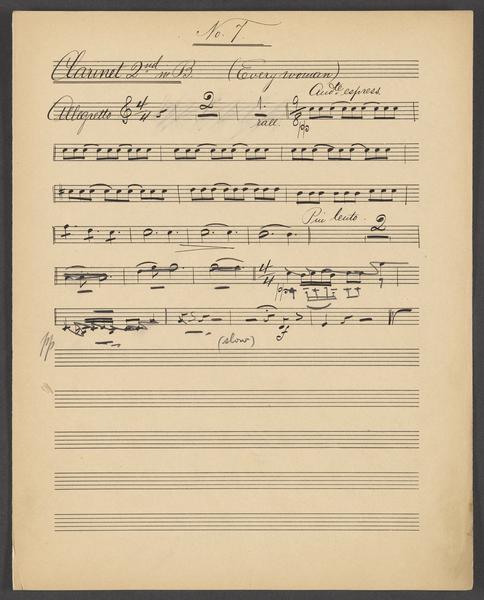 No. 7.
Clarinet 2nd in B. (Everywoman)
Andte espress
Allegretto 4/4 2 1. 9/8
rall. pp
Più lento. 2
4/4
pp
pp (slow) f